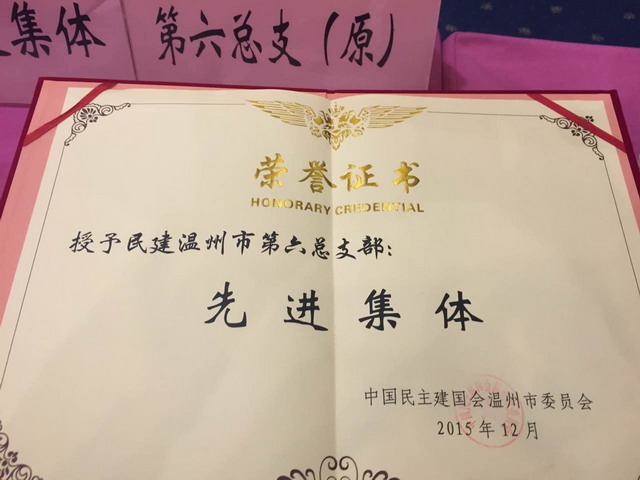 集体
第六总支（原）
荣誉证书
HONORARY CREDENTIAL
授予民建温州市第六总支部：
先进集体
中国民主建国会温州市委员会
2015年12月